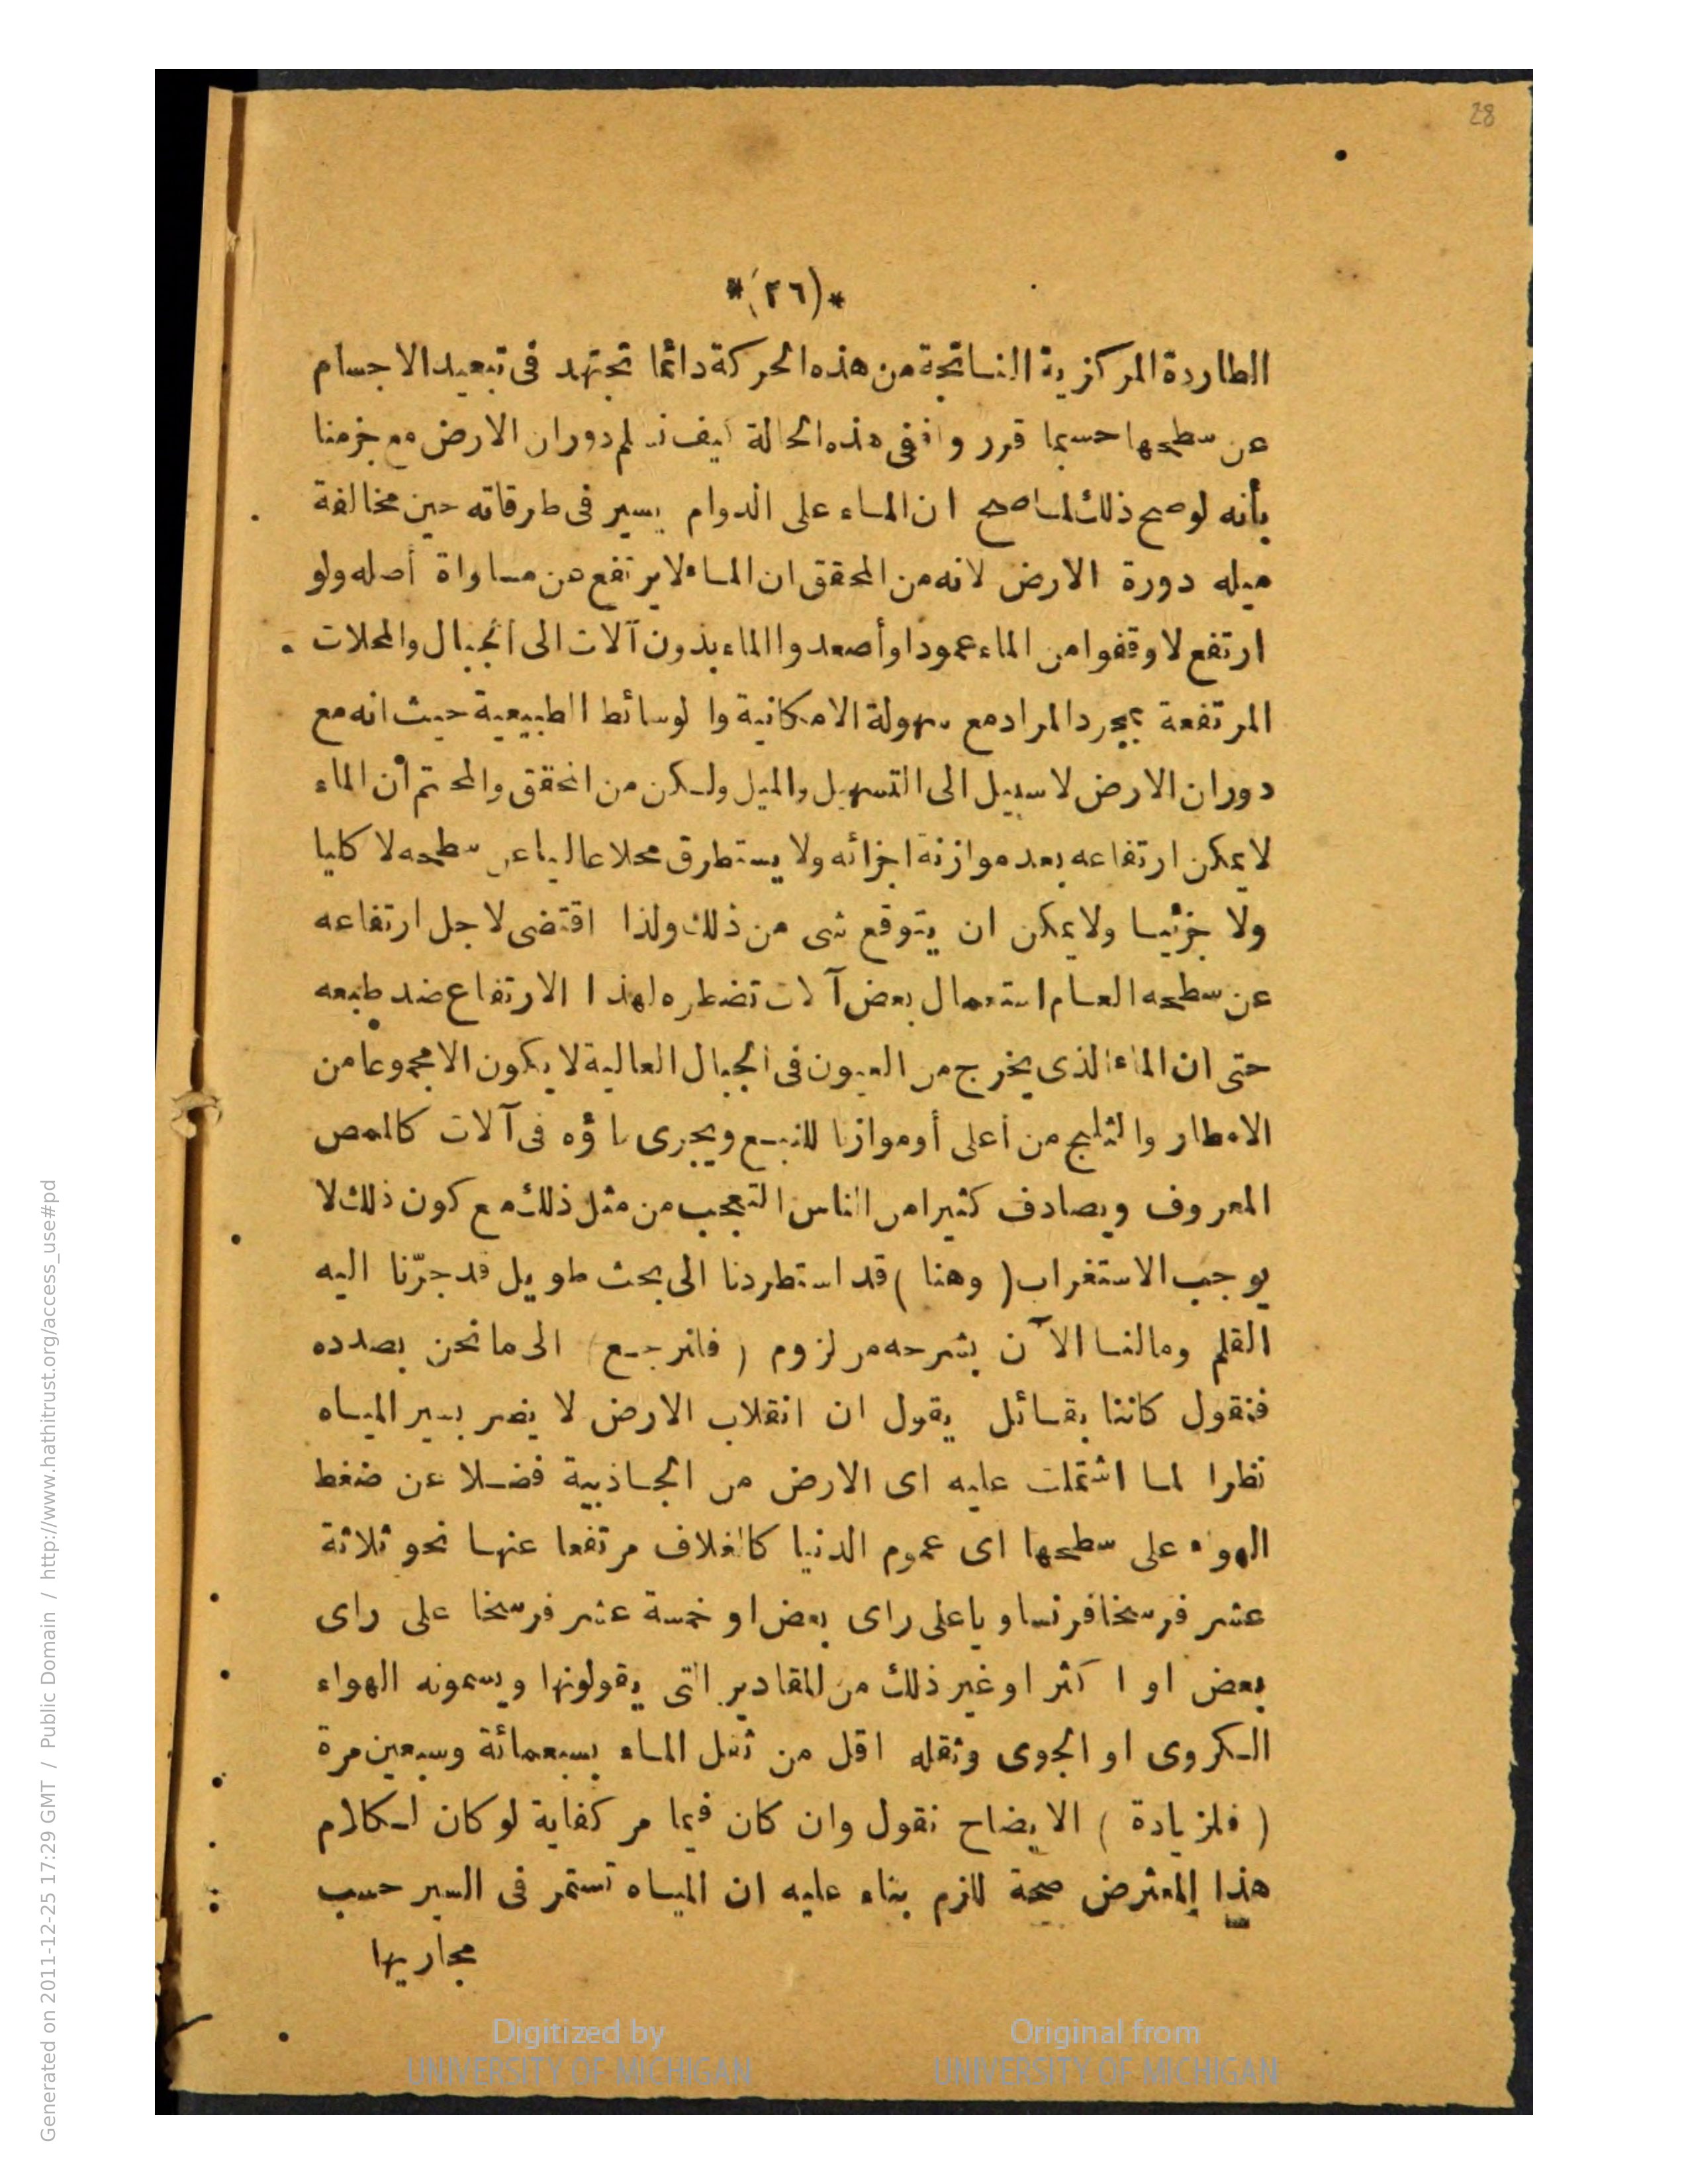 28
*(٢٦)*
الطاردة المركزية الناتجة من هذه الحركة دائما تجتهد فى تبعيد الاجسام
عن سطحها حسبما قرر واففى هذه الحالة كيف نسلم دوران الارض مع جزمنا
بأنه لوصح ذلك لما صح ان الماء على الدوام يسير فى طرقاته حين مخالفة
ميله دورة الارض لانه من المحقق ان الماء لا يرتفع عن مساواة أصله ولو
ارتفع لا وقفوا من الماء عمودا وأصعدوا الماء بدون آلات الى الجبال والمحلات
المرتفعة بمجرد المراد مع سهولة الامكانية والوسائط الطبيعية حيث انه مع
دوران الارض لا سبيل الى التسهيل والميل ولكن من المحقق والمحتم أن الماء
لا يمكن ارتفاعه بعد موازنة اجزائه ولا يستطرق محلا عاليا عن سطحه لا كليا
ولا جزئيا ولا يمكن ان يتوقع شى من ذلك ولذا اقتضى لاجل ارتفاعه
عن سطحه العام استعمال بعض آلات تضطره لهذا الارتفاع ضد طبعه
حتى ان الماء الذى يخرج من العيون فى الجبال العالية لا يكون الا مجموعا من
الامطار والثليج من أعلى أو موازنا للنبع ويجرى ماؤه فى آلات كالممص
المعروف ويصادف كثيرا من الناس التعجب من مثل ذلك مع كون ذلك لا
يوجب الاستغراب (وهنا) قد استطردنا الى بحث طويل قد جرّنا اليه
القلم ومالنا الآن بشرحه من لزوم (فلنرجع) الى ما نحن بصدده
فنقول كاننا بقائل يقول ان انقلاب الارض لا يضر بسير المياه
نظرا لما اشتملت عليه اى الارض من الجاذبية فضلا عن ضغط
الهواء على سطحها اى عموم الدنيا كالغلاف مرتفعا عنها نحو ثلاثة
عشر فرسخا فرنساويا على راى بعض او خمسة عشر فرسخا على راى
بعض او اكثر او غير ذلك من المقادير التى يقولونها ويسمونه الهواء
الكروى او الجوى وثقله اقل من ثقل الماء بسبعمائة وسبعين مرة
(فلزيادة) الايضاح نقول وان كان فيما مر كفاية لو كان لكلام
هذا المعترض صحة للزم بناء عليه ان المياه تستمر فى السير حسب
مجاريها
Digitized by
UNIVERSITY OF MICHIGAN
Original from
UNIVERSITY OF MICHIGAN
Generated on 2011-12-25 17:29 GMT / Public Domain / http://www.hathitrust.org/access_use#pd